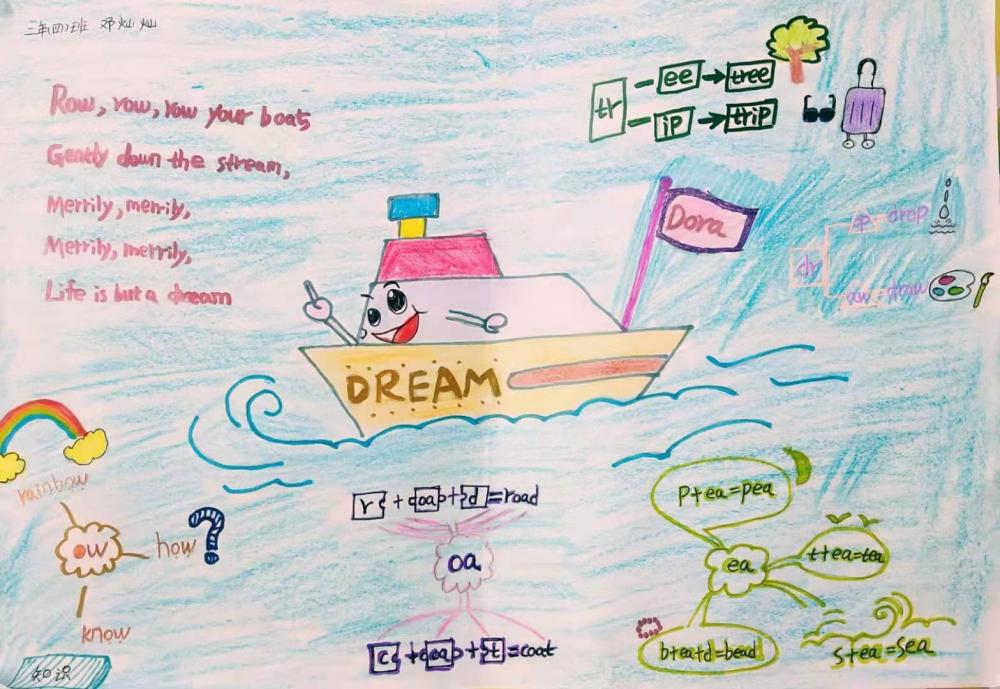 三年(四)班 邓灿灿
Row, row, row your boats
Gently down the stream,
Merrily, merrily,
Merrily, merrily,
Life is but a dream
tr ee tree
ip trip
Dora
dr op drop
aw draw
DREAM
rainbow
ow how?
know
知识
r + oa + d = road
oa
c + oa + t = coat
p+ea=pea
ea t+ea=tea
b+ea+d=bead
s+ea=sea